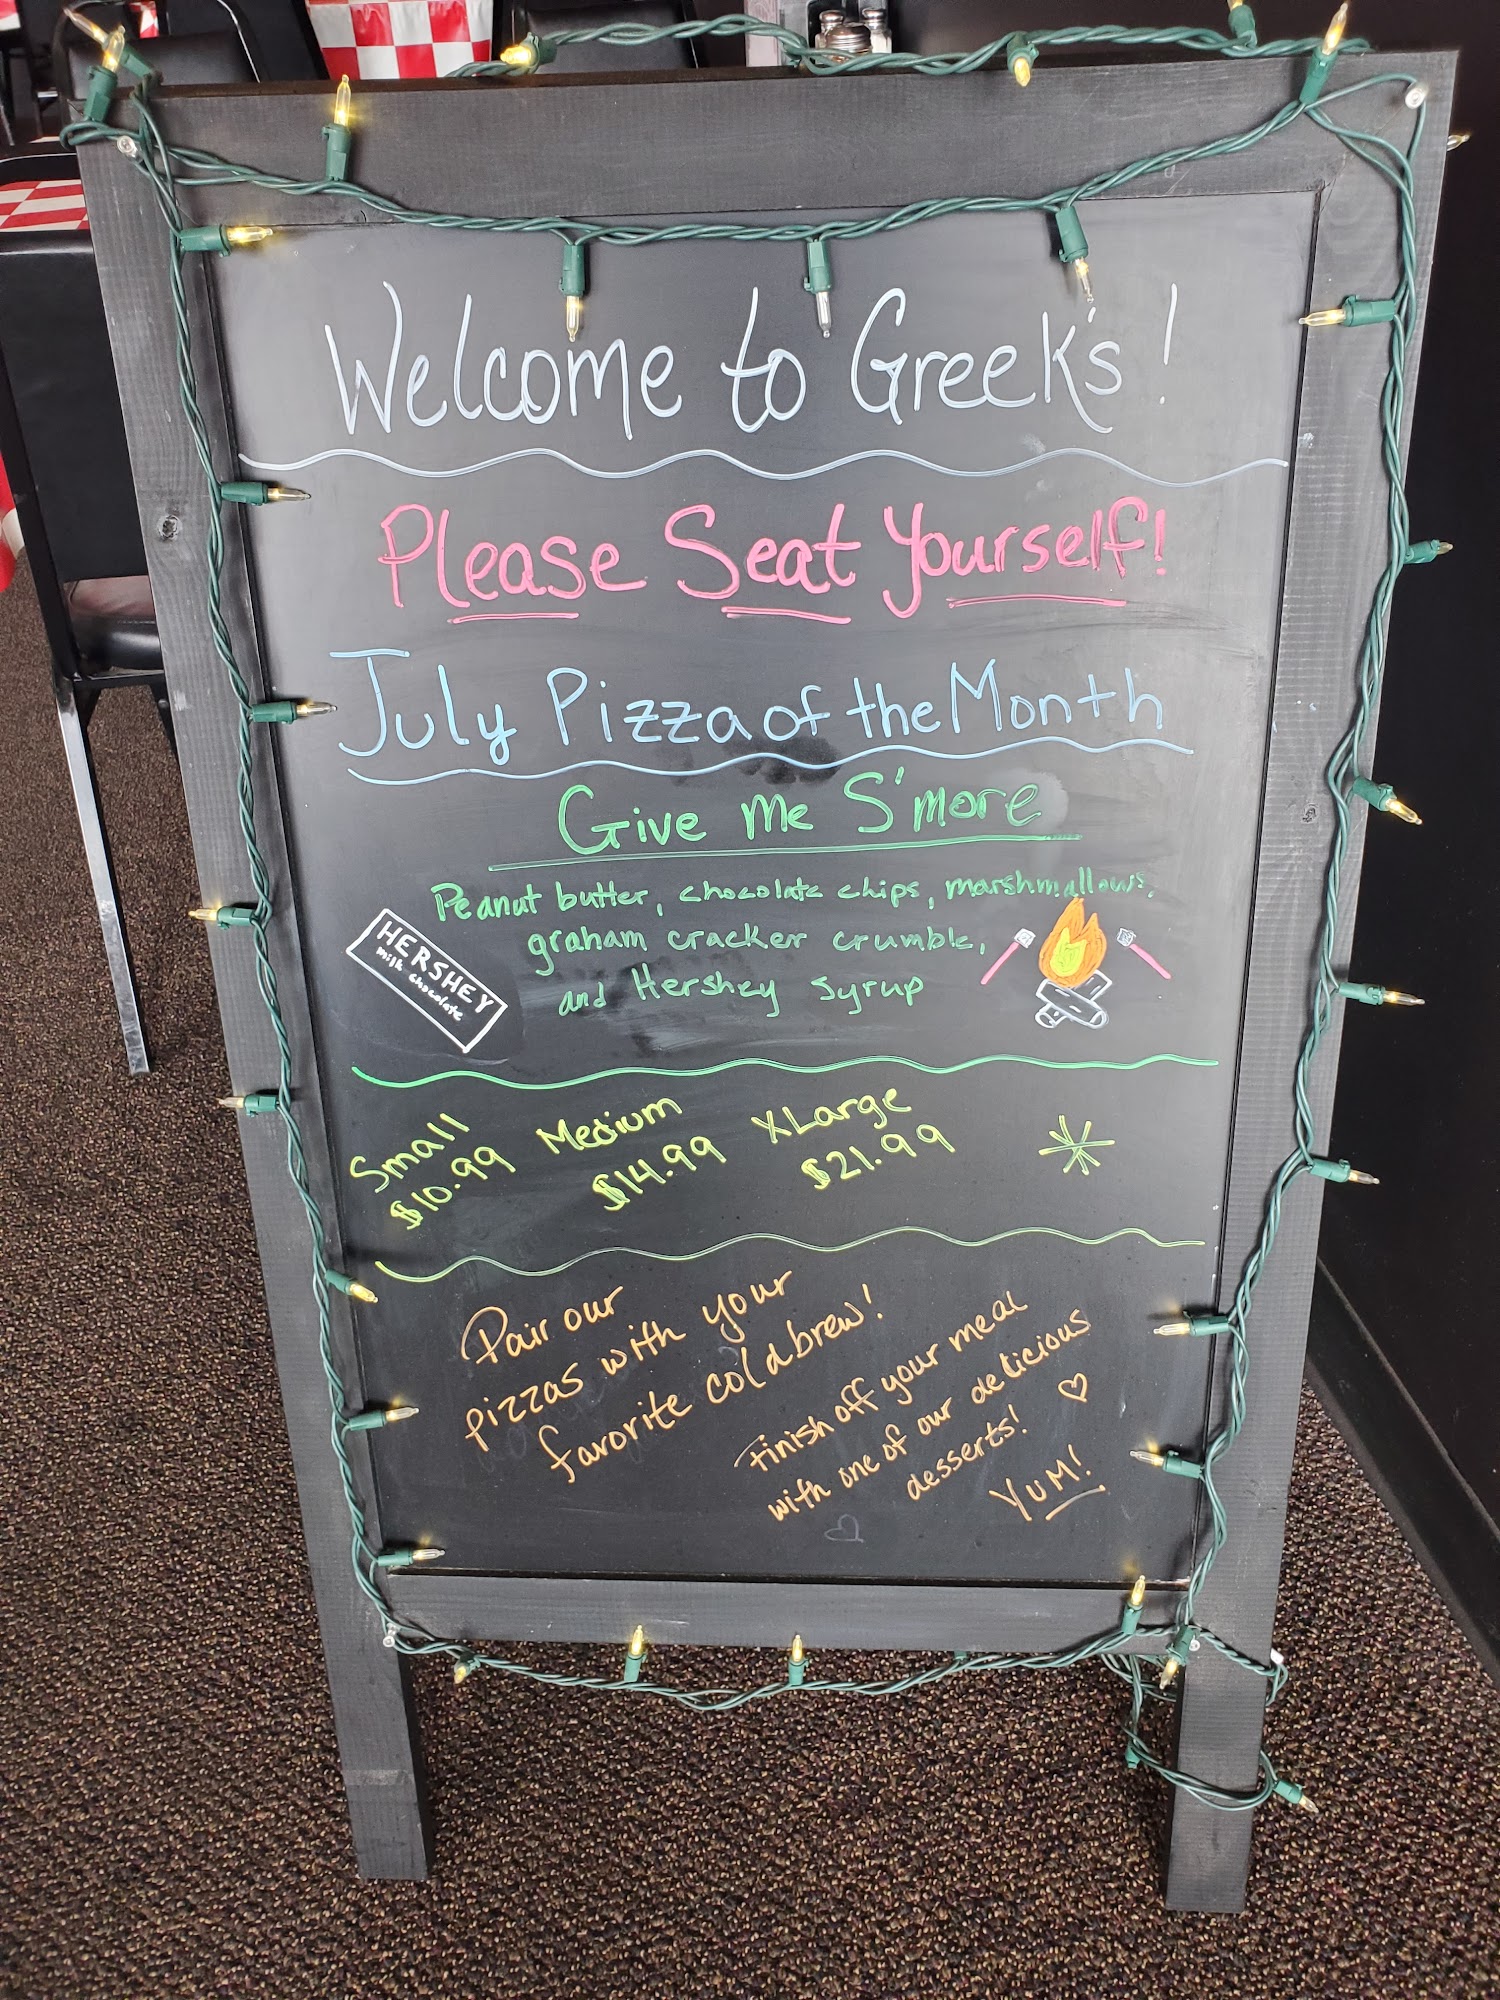 Welcome to Greek's!
Please Seat Yourself!
July Pizza of the Month
Give Me S'more
Peanut butter, chocolate chips, marshmallows,
graham cracker crumble,
and Hershey Syrup
HERSHEY
milk chocolate
Small Medium XLarge
$10.99 $14.99 $21.99
Pair our
pizzas with your
favorite cold brew!
Finish off your meal
with one of our delicious
desserts!
YUM!